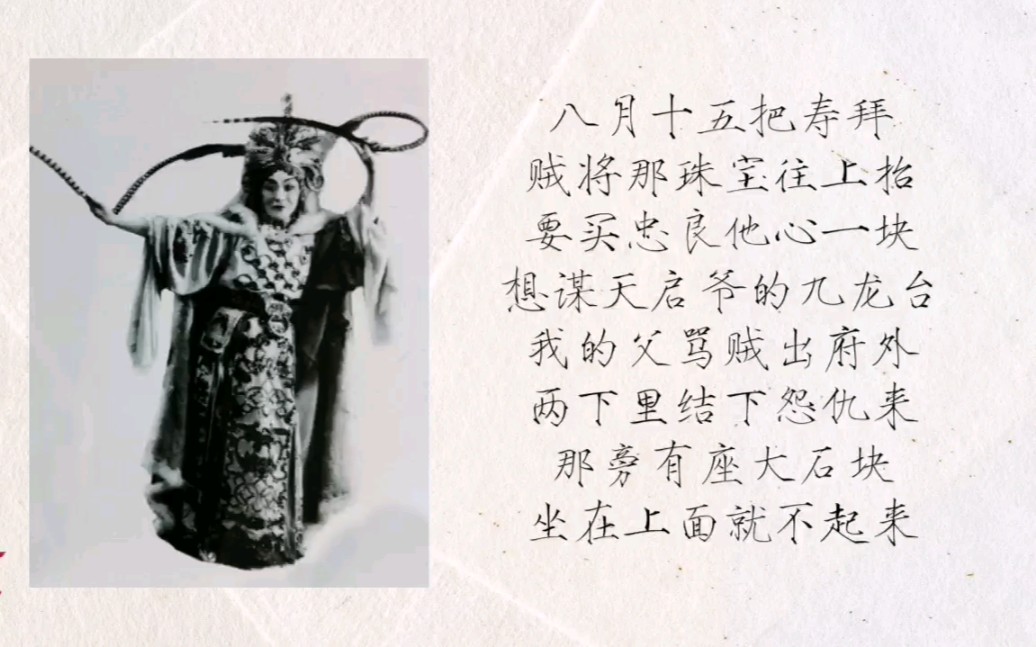 八月十五把寿拜
贼将那珠宝往上抬
要买忠良他心一块
想谋天启爷的九龙台
我的父骂贼出府外
两下里结下怨仇来
那旁有座大石块
坐在上面就不起来